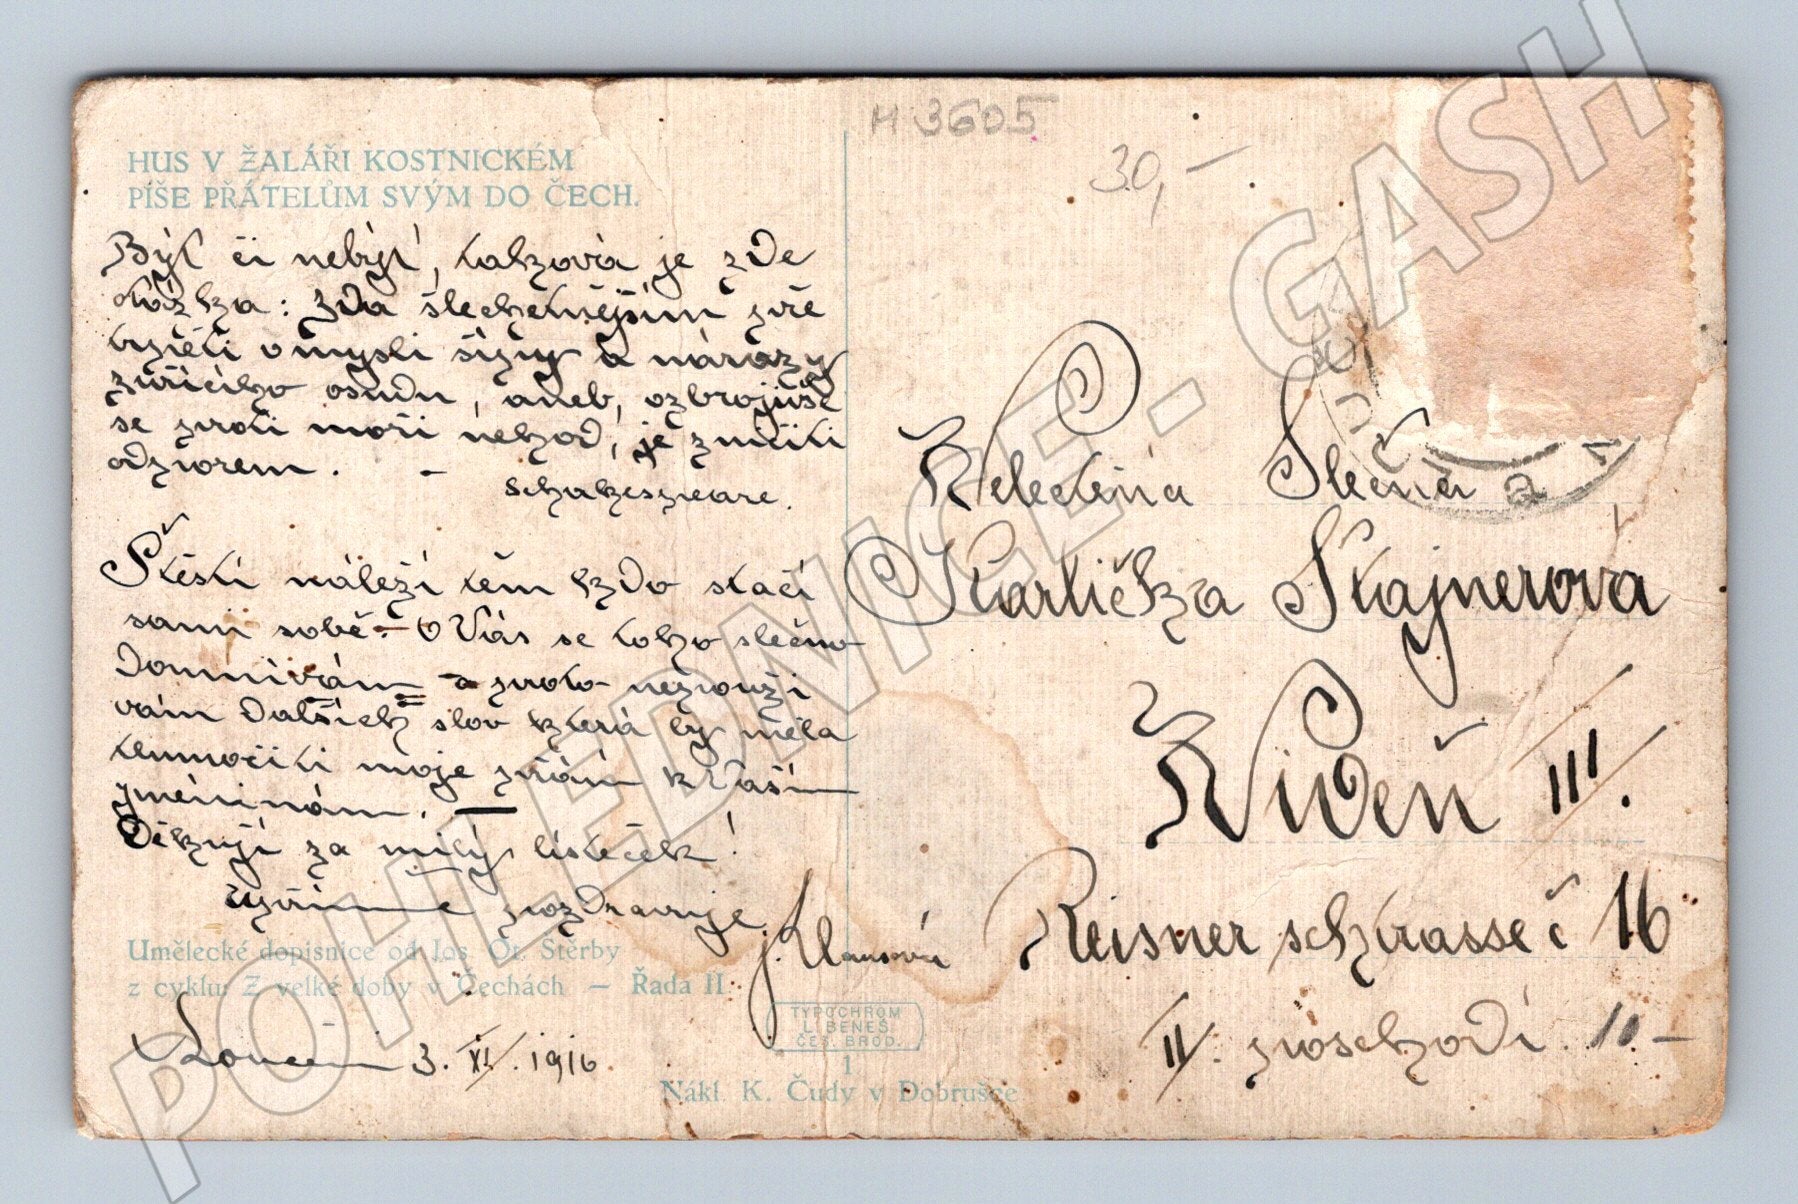 M 3605
30,-
HUS V ŽALÁŘI KOSTNICKÉM
PÍŠE PŘÁTELŮM SVÝM DO ČECH.
Být či nebýt, taková je zde
otázka: zda šlechetnějším jest
trpěti v mysli šípy a nárazy
zuřícího osudu, aneb, ozbrojivše
se proti moři nehod, je zničiti
odporem. -
Schakespeare.
Štěstí náleží těm kdo stačí
sami sobě. U Vás se toho slečno
domnívám a proto nepoužívám
dalších slov která by měla
tlumočiti moje přání k Vašim
jmeninám. —
Děkuji za milý lísteček!
Upřímně pozdravuje
J. Klansová
Umělecké dopisnice od Jos. Ot. Štěrby
z cyklu: Z velké doby v Čechách — Řada II.
Loučeň 3. XI. 1916.
TYPOCHROM
L. BENEŠ,
ČES. BROD.
1
Nákl. K. Čudy v Dobrušce
Velectěná Slečna
Karlička Štajnerová
Vídeň III.
Reisnerschtrasse č 16
II. poschodí. 10.-
POHLEDNICE - GASH